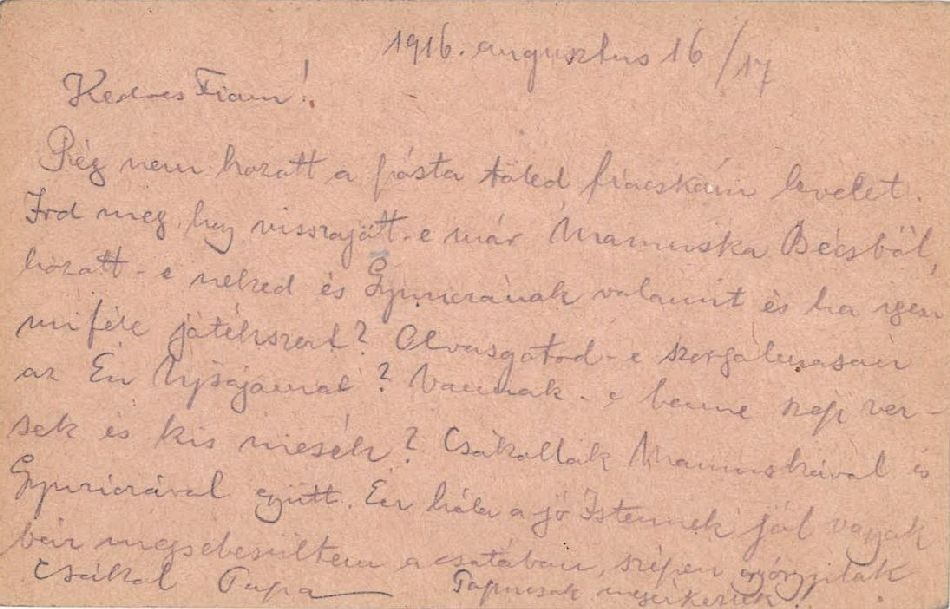 1916. augusztus 16/17
Kedves Fiam!
Rég nem hozott a pósta tőled fiacskám levelet.
Ird meg, hogy visszajött-e már Mamuska Bécsből,
hozott-e neked és Gyuricának valamit és ha igen
miféle játékszert? Olvasgatod-e szorgalmasan
az Én Ujságomat? Vannak-e benne szép ver-
sek és kis mesék? Csókollak Mamuskával és
Gyuricával együtt. Én hála a jó Istennek jól vagyok
bár megsebesültem a csatában, szépen gyógyítanak
Csókol Papa Papucsok megérkeztek